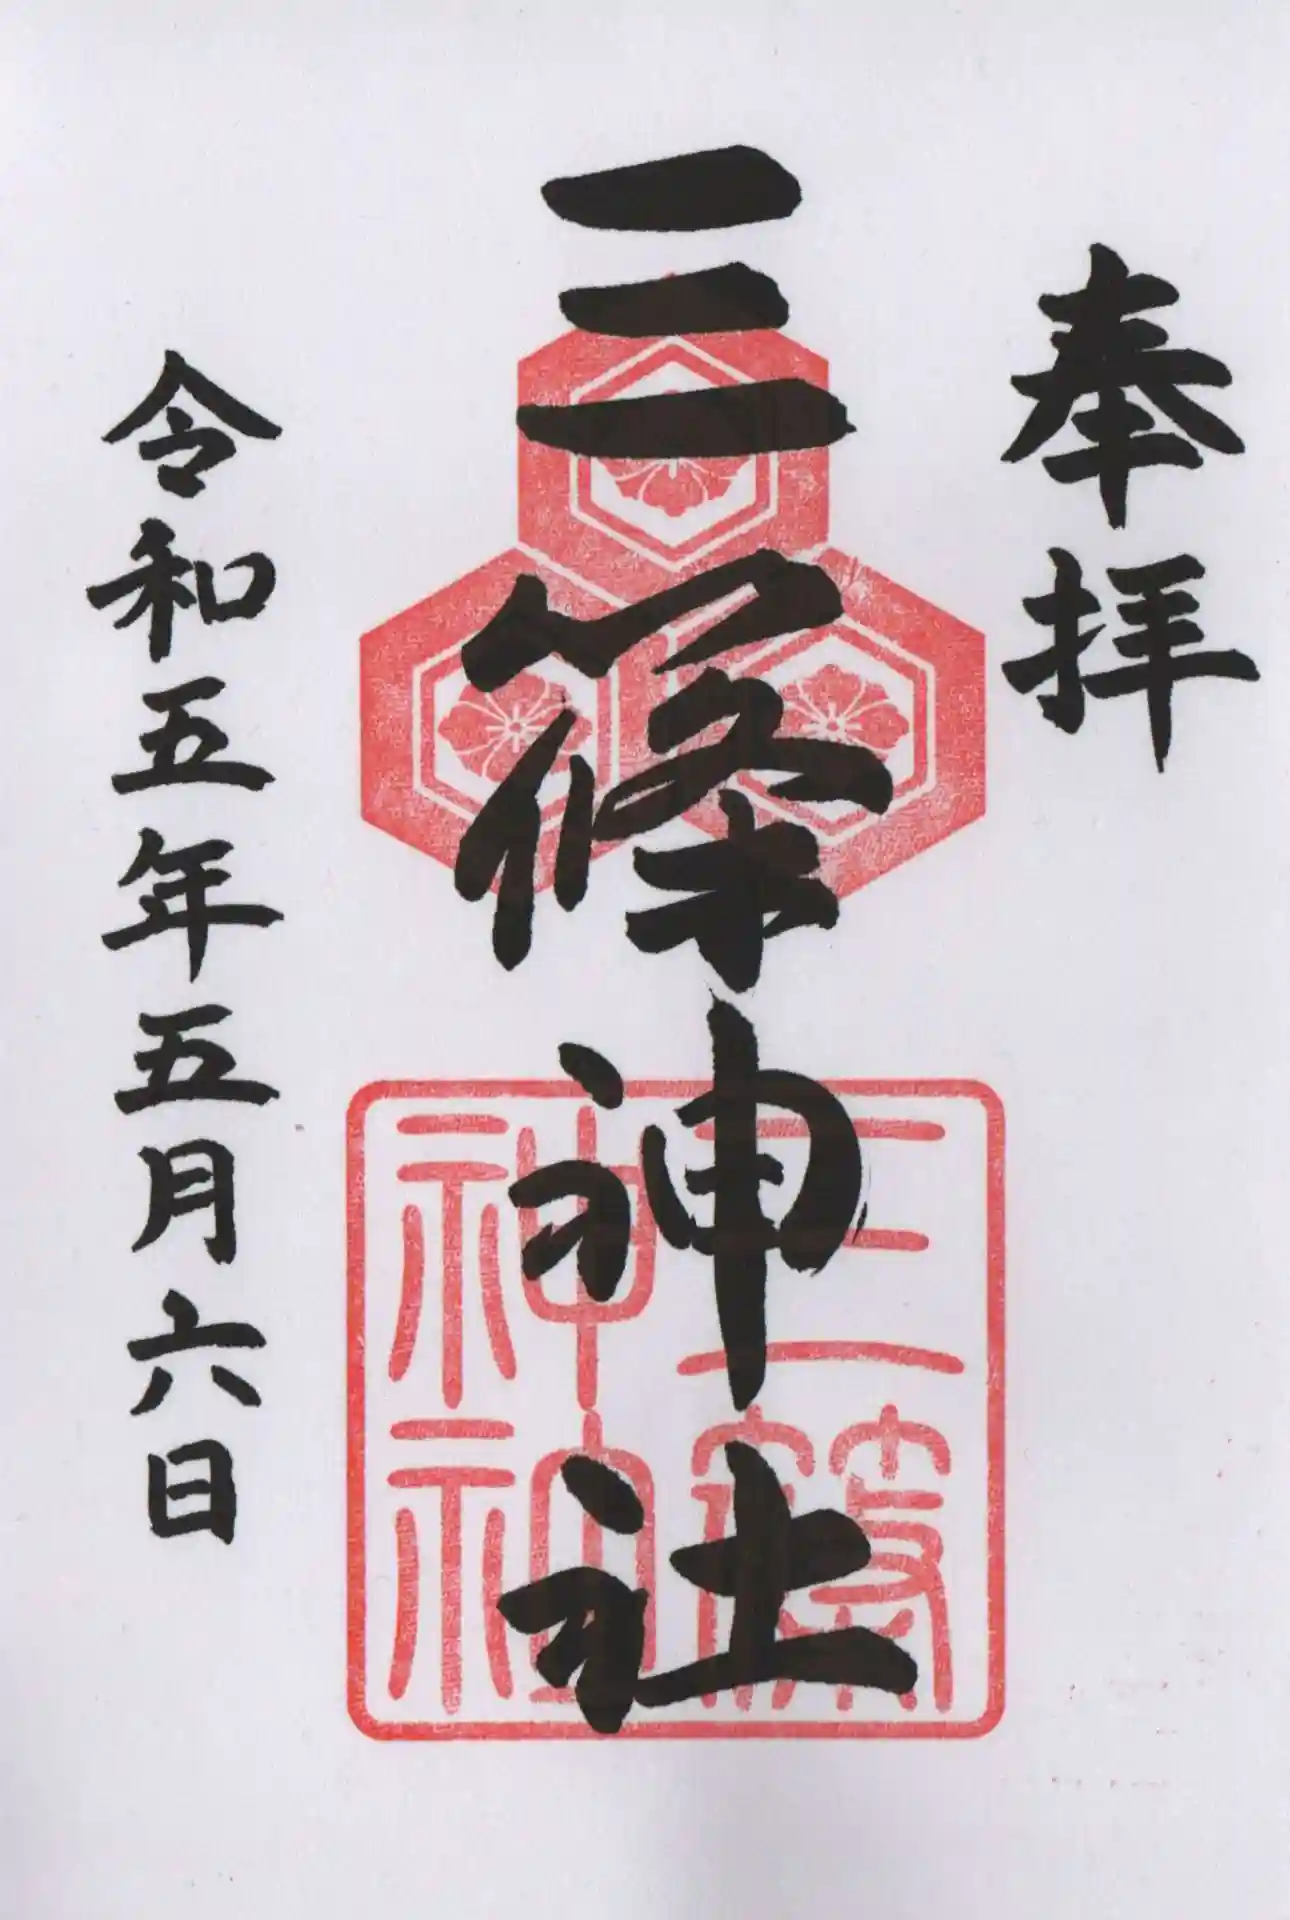 奉拝
三篠神社
令和五年五月六日
三篠
神社